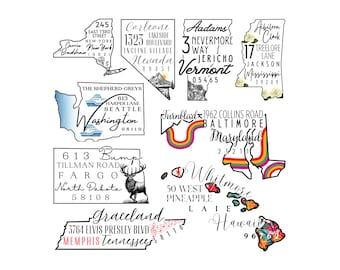 245
EAST 73RD STREET
NEW YORK
New York
Carleone
1323 LAKESIDE
BOULEVARD
INCLINE VILLAGE
Nevada
89451
Aadams
3 NEVERMORE
WAY
JERICHO
Vermont
05465
17 TREELORE
LANE
JACKSON
Mississippi
39209
THE SHEPHERD-GREYS
613
HARPER LANE
SEATTLE
Washington
98119
Turnblad
1962 COLLINS ROAD
BALTIMORE
Maryland
613 Bump
TILLMAN ROAD
FARGO
North Dakota
58108
Whitmore
50 WEST
PINEAPPLE
LAIE
Hawaii
Graceland
3764 ELVIS PRESLEY BLVD
MEMPHIS Tennessee